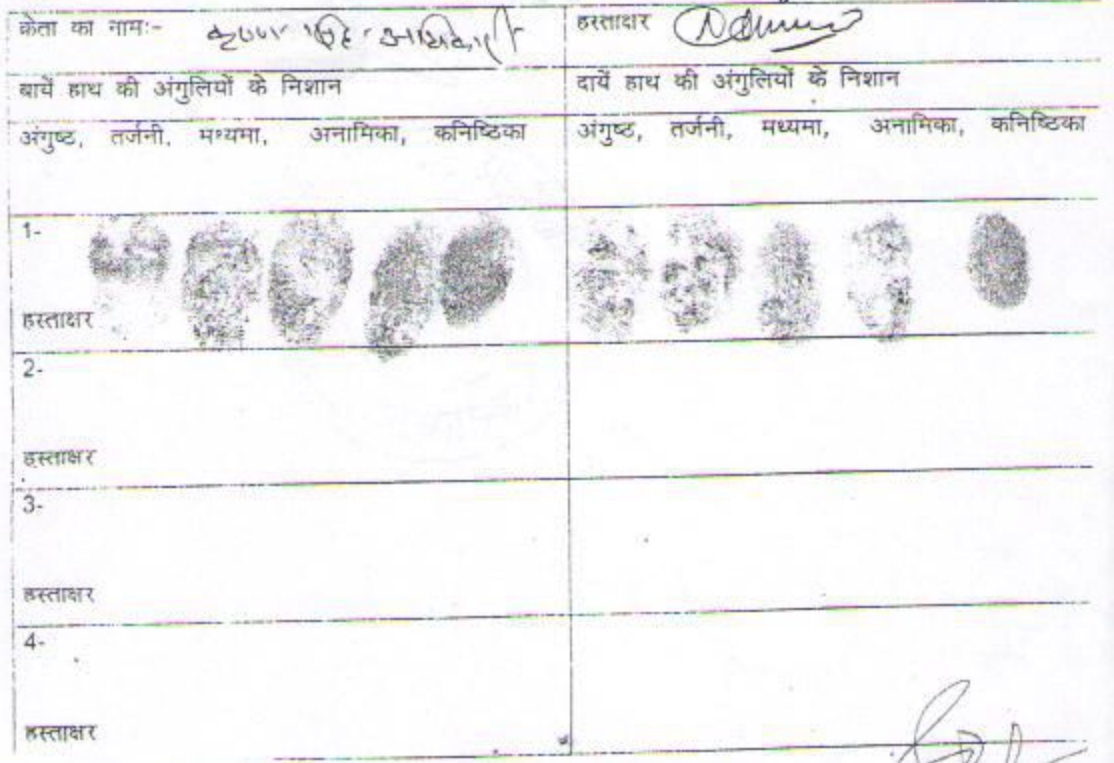 क्रेता का नाम:- कृपाल सिंह अधिकारी हस्ताक्षर
बायें हाथ की अंगुलियों के निशान दायें हाथ की अंगुलियों के निशान
अंगुष्ट, तर्जनी, मध्यमा, अनामिका, कनिष्टिका अंगुष्ट, तर्जनी, मध्यमा, अनामिका, कनिष्टिका
1-
हस्ताक्षर
2-
हस्ताक्षर
3-
हस्ताक्षर
4-
हस्ताक्षर